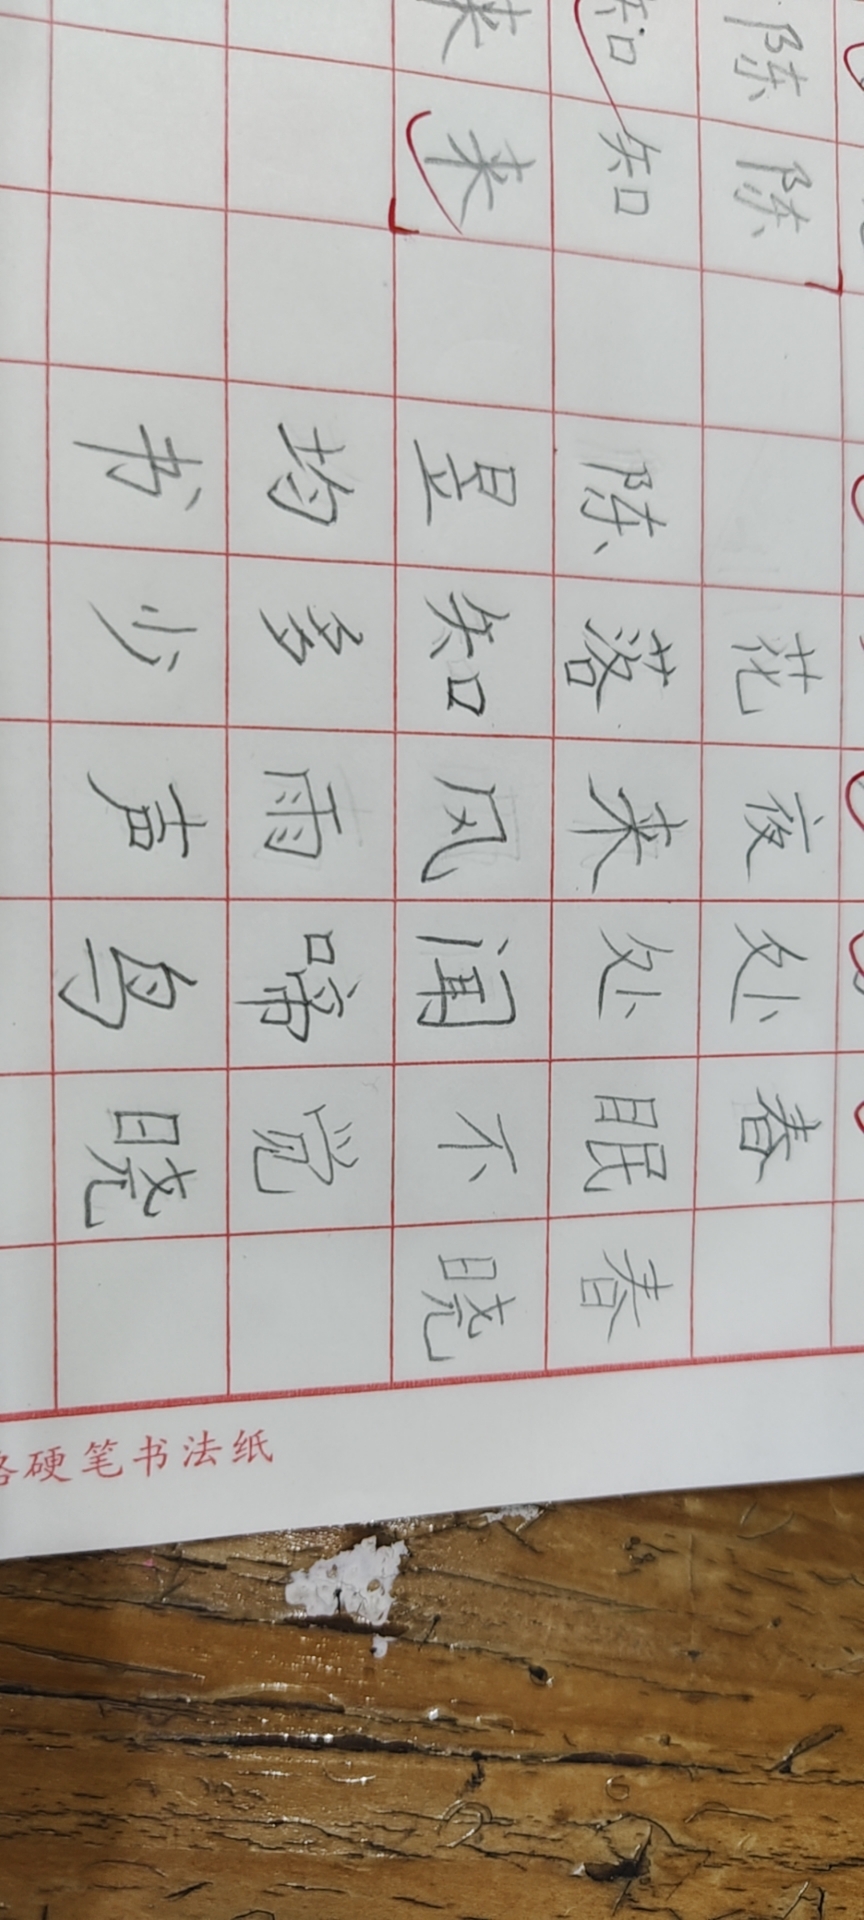 春晓
春眠不觉晓
处处闻啼鸟
夜来风雨声
花落知多少
陈昱均书
陈知来
陈知来
硬笔书法纸